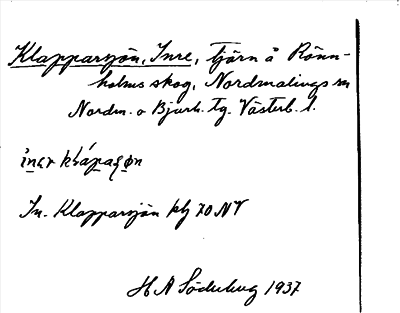 Klapparsjön, Inre, tjärn å Rönn-
holms skog, Nordmalings sn
Nordm. o Bjurh. tg. Västerb. l.
In. Klapparsjön kbl 70 NV
H A Söderberg 1937